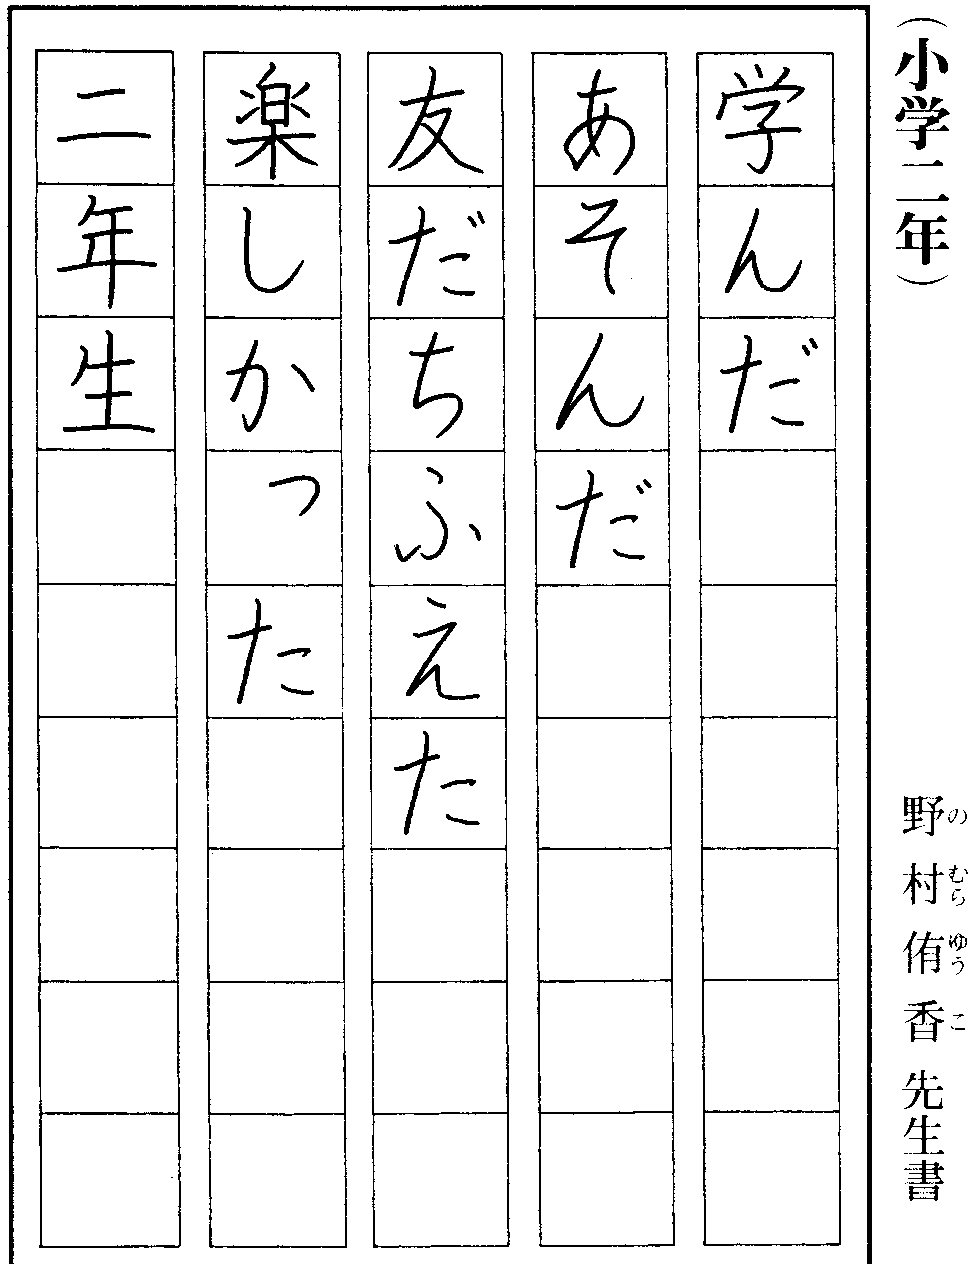 （小学二年）
野村侑香先生書
のむらゆうこ
学んだ
あそんだ
友だちふえた
楽しかった
二年生